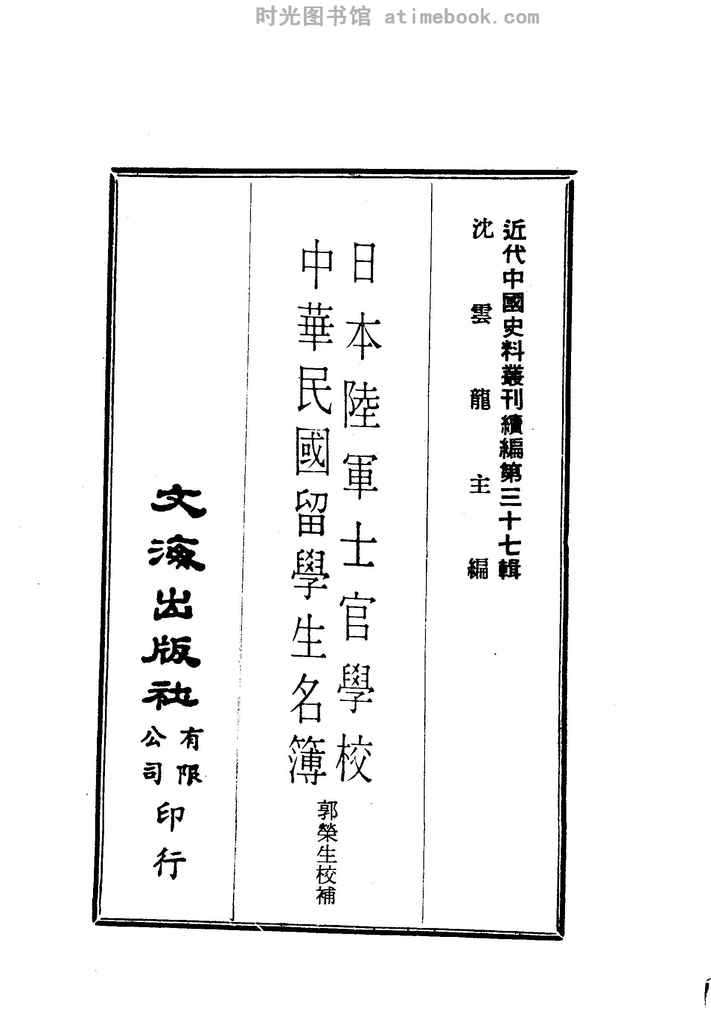 时光图书馆 atimebook.com
近代中國史料叢刊續編第三十七輯
沈雲龍主編
日本陸軍士官學校
中華民國留學生名簿
郭榮生校補
文海出版社
有限
公司
印行